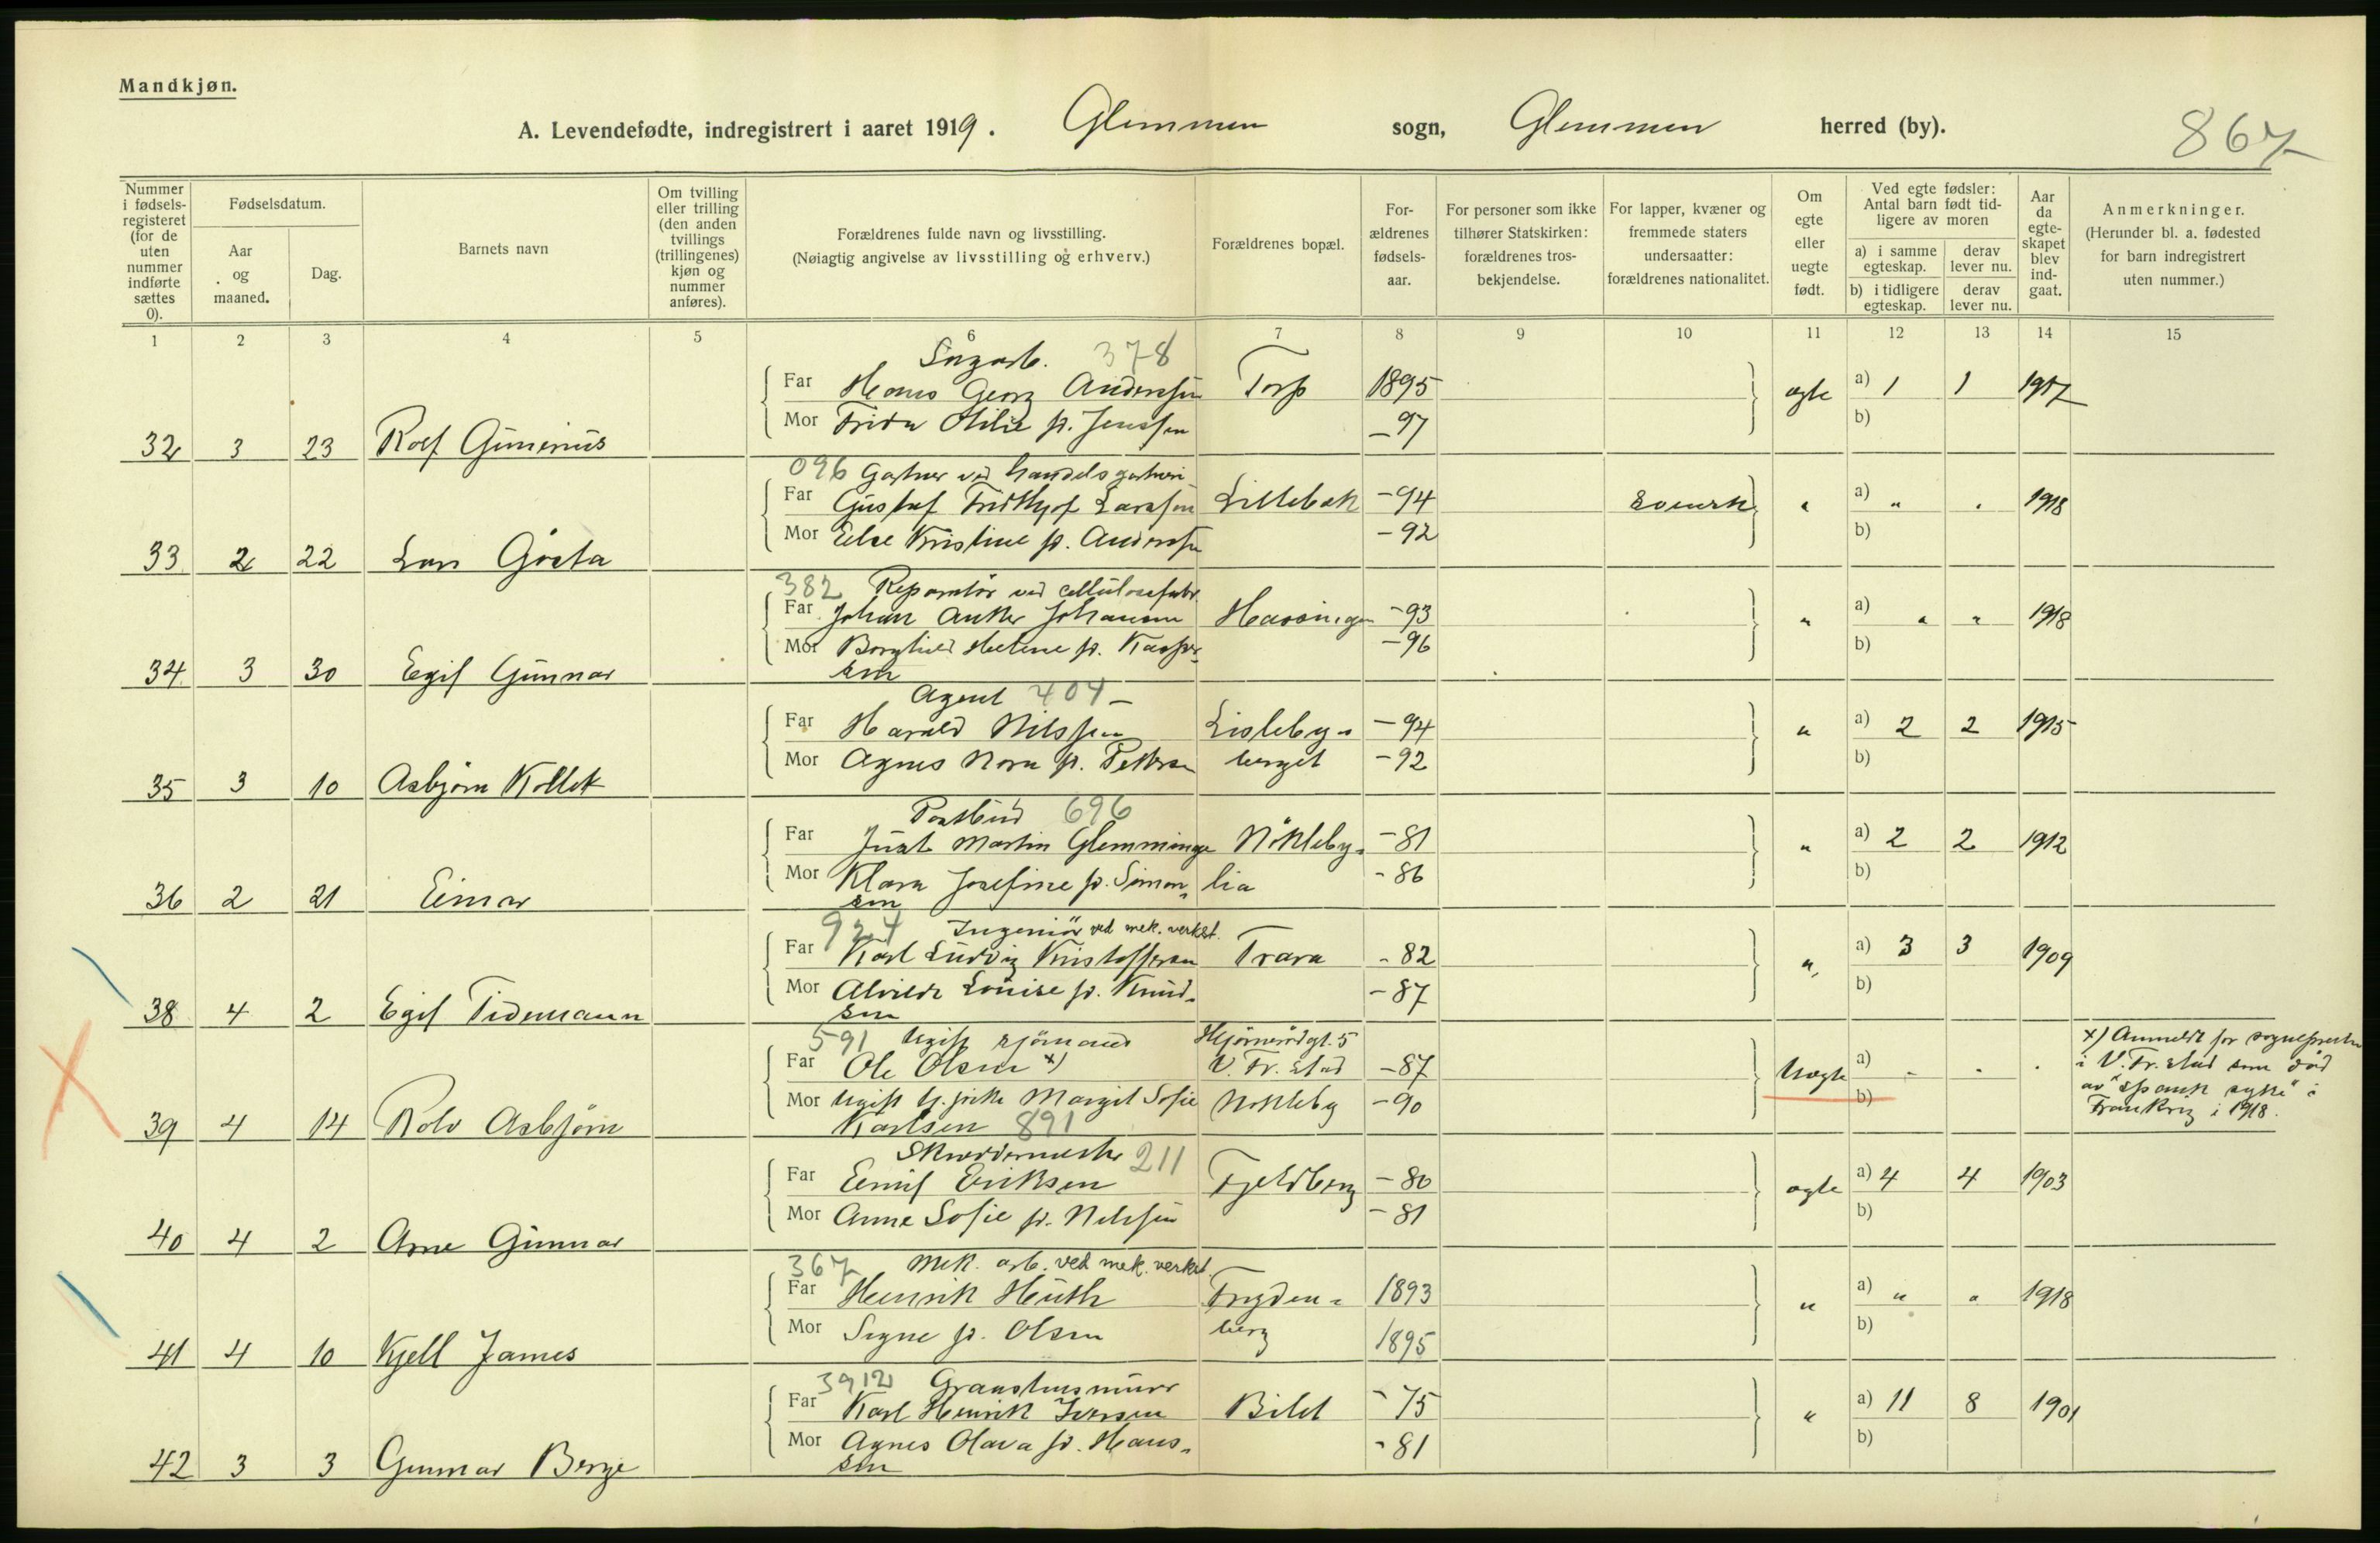 Mandkjøn.
A. Levendefødte, indregistrert i aaret 1919. Glemmen sogn, Glemmen herred (by).
867
Nummer i fødsels-registeret (for de uten nummer indførte sættes 0).
Fødselsdatum.
Aar og maaned.
Dag.
Barnets navn
Om tvilling eller trilling (den anden tvillings (trillingenes) kjøn og nummer anføres).
Forældrenes fulde navn og livsstilling.
(Nøiagtig angivelse av livsstilling og erhverv.)
Forældrenes bopæl.
For-ældrenes fødsels-aar.
For personer som ikke tilhører Statskirken: forældrenes tros-bekjendelse.
For lapper, kvæner og fremmede staters undersaatter: forældrenes nationalitet.
Om egte eller uegte født.
Ved egte fødsler: Antal barn født tid-ligere av moren
a) i samme egteskap.
derav lever nu.
b) i tidligere egteskap.
derav lever nu.
Aar da egte-skapet blev ind-gaat.
Anmerkninger.
(Herunder bl. a. fødested for barn indregistrert uten nummer.)
1 2 3 4 5 6 7 8 9 10 11 12 13 14 15
Sagarb. 378
Far Hans Georg Anderssen Torp 1895 egte a) 1 1 1917
Mor Frida Otilie f. Jenssen -97 b)
32 3 23 Rolf Gunerius
096 Gartner ved handelsgartneri
Far Gustaf Fridthjof Larsson Lillebæk -94 Svensk " a) " " 1918
Mor Else Kristine f. Anderssen -92 b)
33 2 22 Lars Gösta
382 Reparatør ved cellulosefabr.
Far Johan Anker Johansen Hassingen -93 " a) " " 1918
Mor Borghild Helene f. Kasper- -96 b)
sen
34 3 30 Egil Gunnar
Agent 404 -
Far Harald Nilssen Lisleby- -94 " a) 2 2 1915
Mor Agnes Nora f. Pettersen berget -92 b)
35 3 10 Asbjørn
Postbud 696
Far Just Martin Glemminge Nökleby- -81 " a) 2 2 1912
Mor Klara Josefine f. Simon- lia -86 b)
sen
36 2 21 Einar
924 Ingeniör ved mek. verkst.
Far Karl Ludvig Kristoffersen Trara -82 " a) 3 3 1909
Mor Alvilde Louise f. Knud- -87 b)
sen
38 4 2 Egil Tidemann
591 Ugift sjömand Hjörnerödgt. 5
Far Ole Olsen x) V. Fr.stad -87 Uegte a) - - -
Mor Ugift Margit Sofie Nökleby -90 b)
Karlsen 891
39 4 14 Rolv Asbjörn
x) Anmeldt for sognepresten
i V. Fr.stad som död
av "spansk syke" i
Frankrig i 1918.
Skreddermester 211
Far Emil Eriksen Fjeldberg -80 egte a) 4 4 1903
Mor Anne Sofie f. Nilssen -81 b)
40 4 2 Arne Gunnar
367 Mek. arb. ved mek. verkst.
Far Henrik Huth Fryden- 1893 " a) " " 1918
Mor Signe f. Olsen berg 1895 b)
41 4 10 Kjell James
3912 Graastensmurer
Far Karl Henrik Iversen Bilet -75 " a) 11 8 1901
Mor Agnes Olava f. Hans- -81 b)
sen
42 3 3 Gunnar Berge